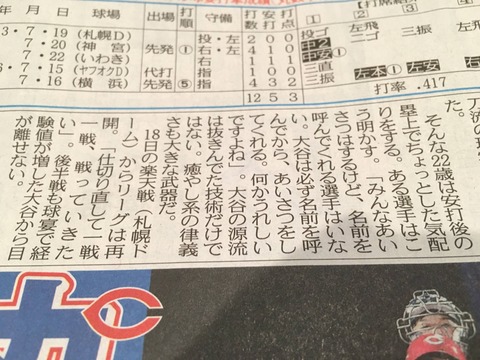 年 月 日 球場 出場 打順 守備 打数 安打 打点 [1] [2] [3]
3・7・19（札幌D） 投・左 2 0 0 投ゴ 左飛
7・20（神宮） 先発 ① 4 2 0 中2
7・22（いわき） 中安① 三振
7・18（ヤフオクD） 代打 指 三直
7・16（横浜） 先発 ⑤ 指 三振 左本① 左安
12 5 3 打率.417
た。
そんな22歳は安打後の
塁上でちょっとした気配
りをする。ある選手はこ
う明かす。「みんなあい
さつはするけど、名前を
呼んでくれる選手はいな
い。大谷は必ず名前を呼
んでから、あいさつをし
てくれる。何かうれしい
ですよね」。大谷の源流
は抜きんでた技術だけで
はない。癒やし系の律義
さも大きな武器だ。
18日の楽天戦（札幌ド
ーム）からリーグは再
開。「仕切り直して一戦
一戦、戦っていきた
い」。後半戦も球宴で経
験値が増した大谷から目
が離せない。